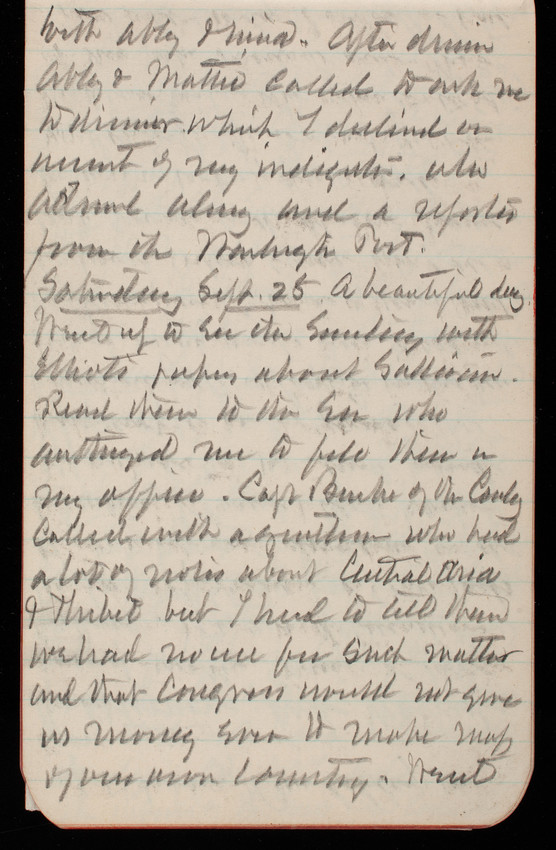 with Abby & Nina. After dinner
Abby & Mattie called to ask me
to dinner which I declined on
account of my indigestion. also
along and a reporter
from the Washington Post.
Saturday Sept. 25 A beautiful day.
Went up to see the Secretary with
Elliots papers about
Read them to the Sec who
authorized me to file them in
my office. Capt Bourke of the Cavly
called with a gentleman who had
a lot of notes about Central Asia
& Thibet but I had to tell them
we had no use for such matter
and that Congress would not give
us money even to make maps
of our own Country. Went